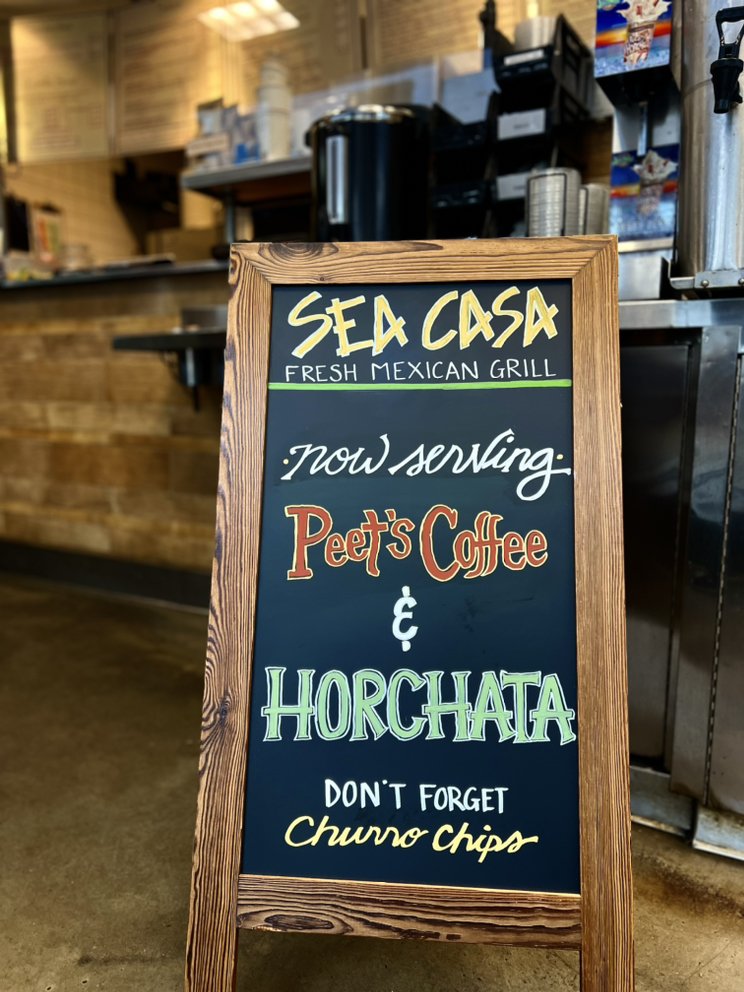 SEA CASA
FRESH MEXICAN GRILL
now serving
Peet's Coffee
&
HORCHATA
DON'T FORGET
Churro Chips